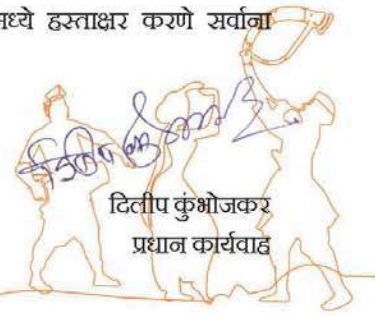 मध्ये हस्ताक्षर करणे सर्वाना
दिलीप कुंभोजकर
प्रधान कार्यवाह